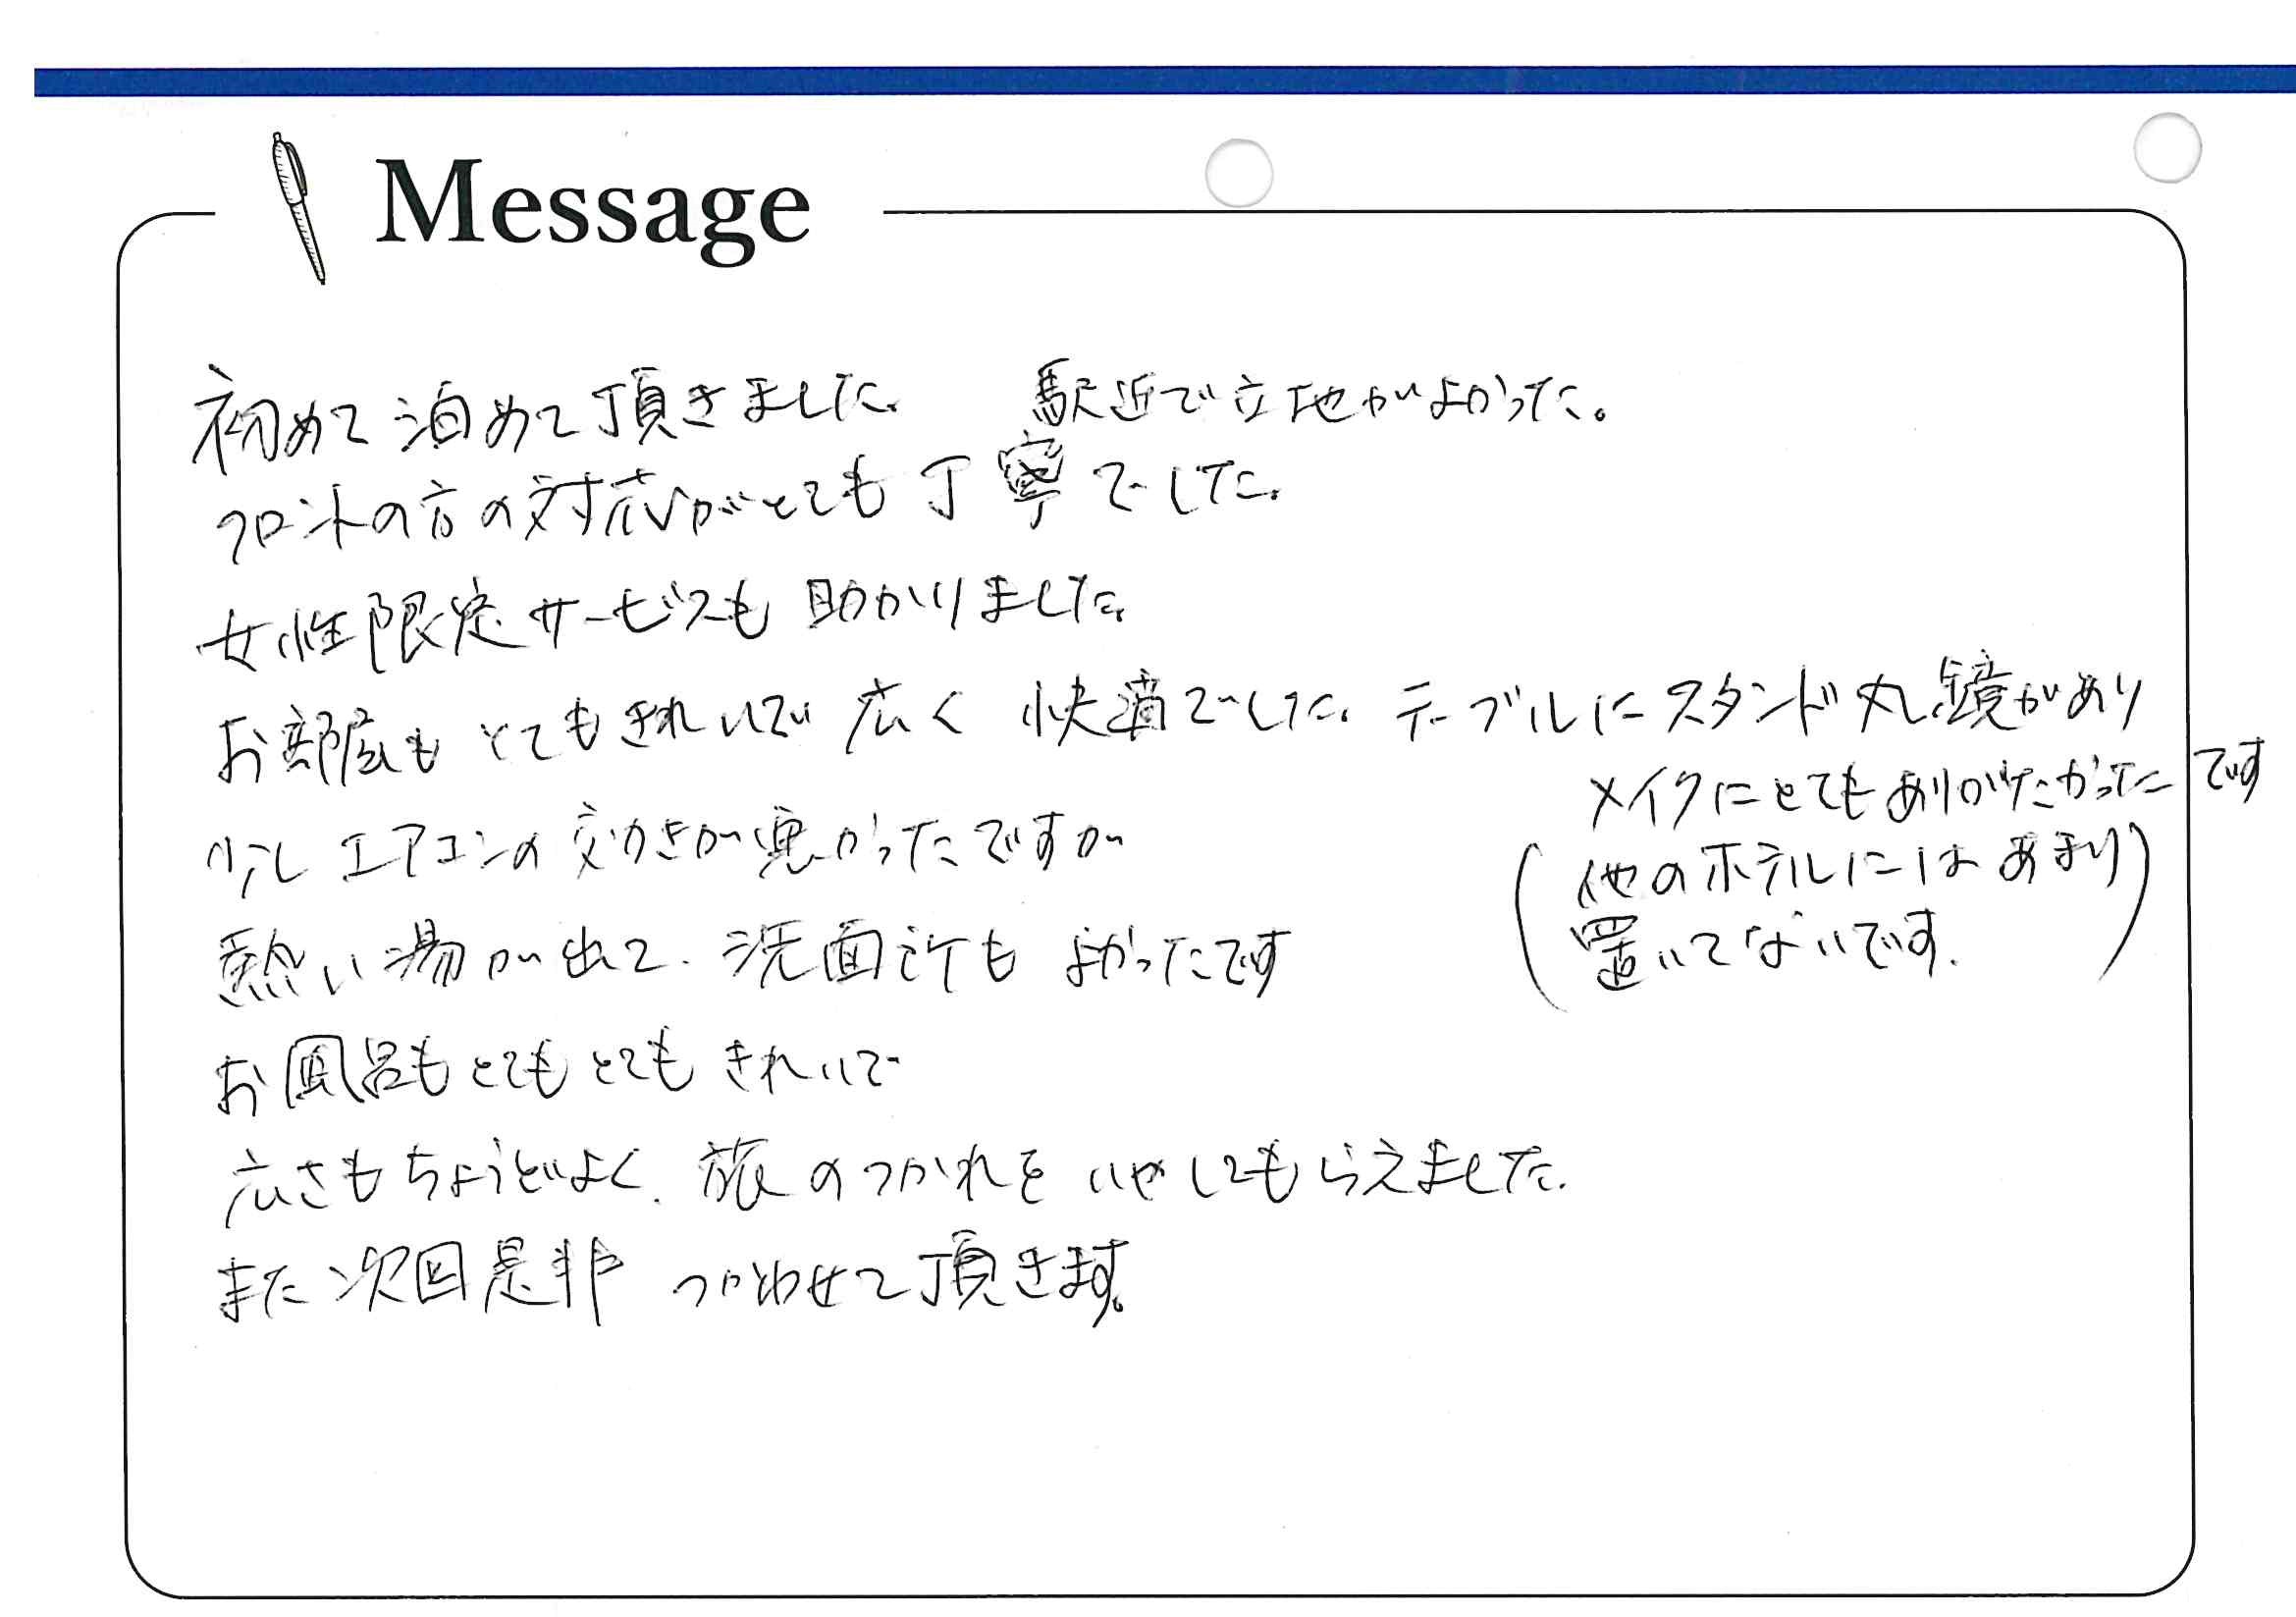 Message
初めて泊めて頂きました。 駅近で立地がよかった。
フロントの方の対応がとても丁寧でした。
女性限定サービスも助かりました。
お部屋もとてもきれいで広く快適でした。テーブルにスタンド丸鏡があり
メイクにとてもありがたかったです
少しエアコンの効きが悪かったですが
(他のホテルにはあまり
置いてないです。)
熱い湯が出て、洗面所もよかったです
お風呂もとてもとてもきれいで
広さもちょうどよく、旅のつかれをいやしてもらえました。
また次回是非つかわせて頂きます。